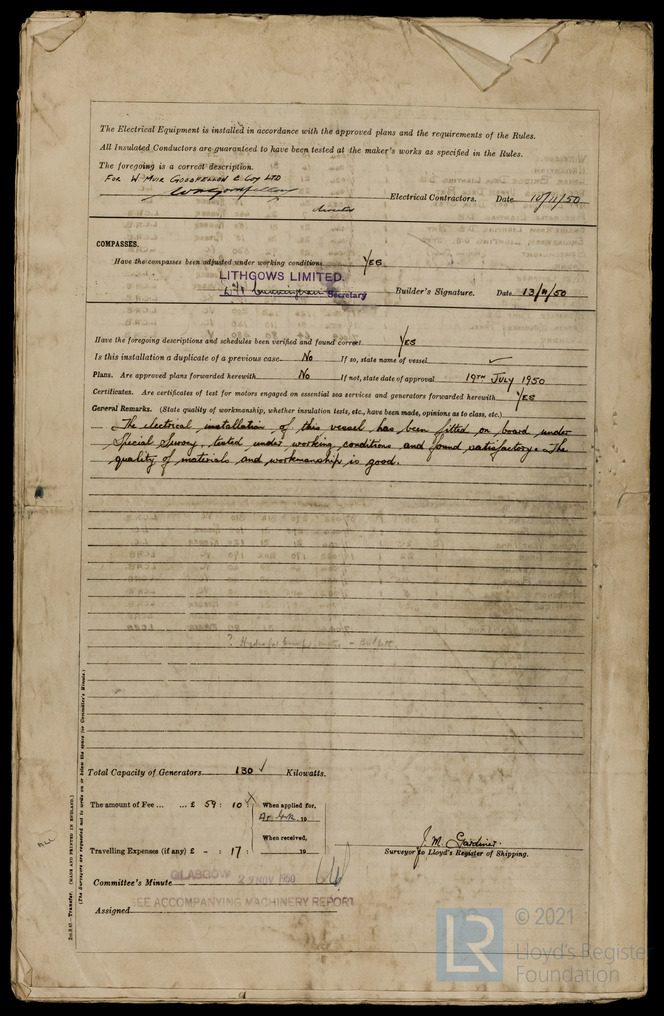 The Electrical Equipment is installed in accordance with the approved plans and the requirements of the Rules.
All Insulated Conductors are guaranteed to have been tested at the maker's works as specified in the Rules.
The foregoing is a correct description.
FOR W. MUIR GOODFELLOW & COY LTD
Electrical Contractors. Date 10/11/50
COMPASSES.
Have the compasses been adjusted under working conditions YES
LITHGOWS LIMITED.
Secretary Builder's Signature. Date 13/11/50
Have the foregoing descriptions and schedules been verified and found correct YES
Is this installation a duplicate of a previous case No If so, state name of vessel ✓
Plans. Are approved plans forwarded herewith No If not, state date of approval 19TH JULY 1950
Certificates. Are certificates of test for motors engaged on essential sea services and generators forwarded herewith YES
General Remarks. (State quality of workmanship, whether insulation tests, etc., have been made, opinions as to class, etc.)
The electrical installation of this vessel has been fitted on board under
Special Survey, tested under working conditions and found satisfactory. The
quality of materials and workmanship is good.
Total Capacity of Generators 130 ✓ Kilowatts.
The amount of Fee ... ... £ 59 : 10 When applied for,
19
When received,
Travelling Expenses (if any) £ - : 17 : 19
J. M. Gardiner.
Surveyor to Lloyd's Register of Shipping.
Committee's Minute GLASGOW 29 NOV 1950
Assigned SEE ACCOMPANYING MACHINERY REPORT
Transfer. (MADE AND PRINTED IN ENGLAND.)
(The Surveyors are requested not to write on or below the space for Committee's Minute.)
LR
© 2021
Lloyd's Register
Foundation